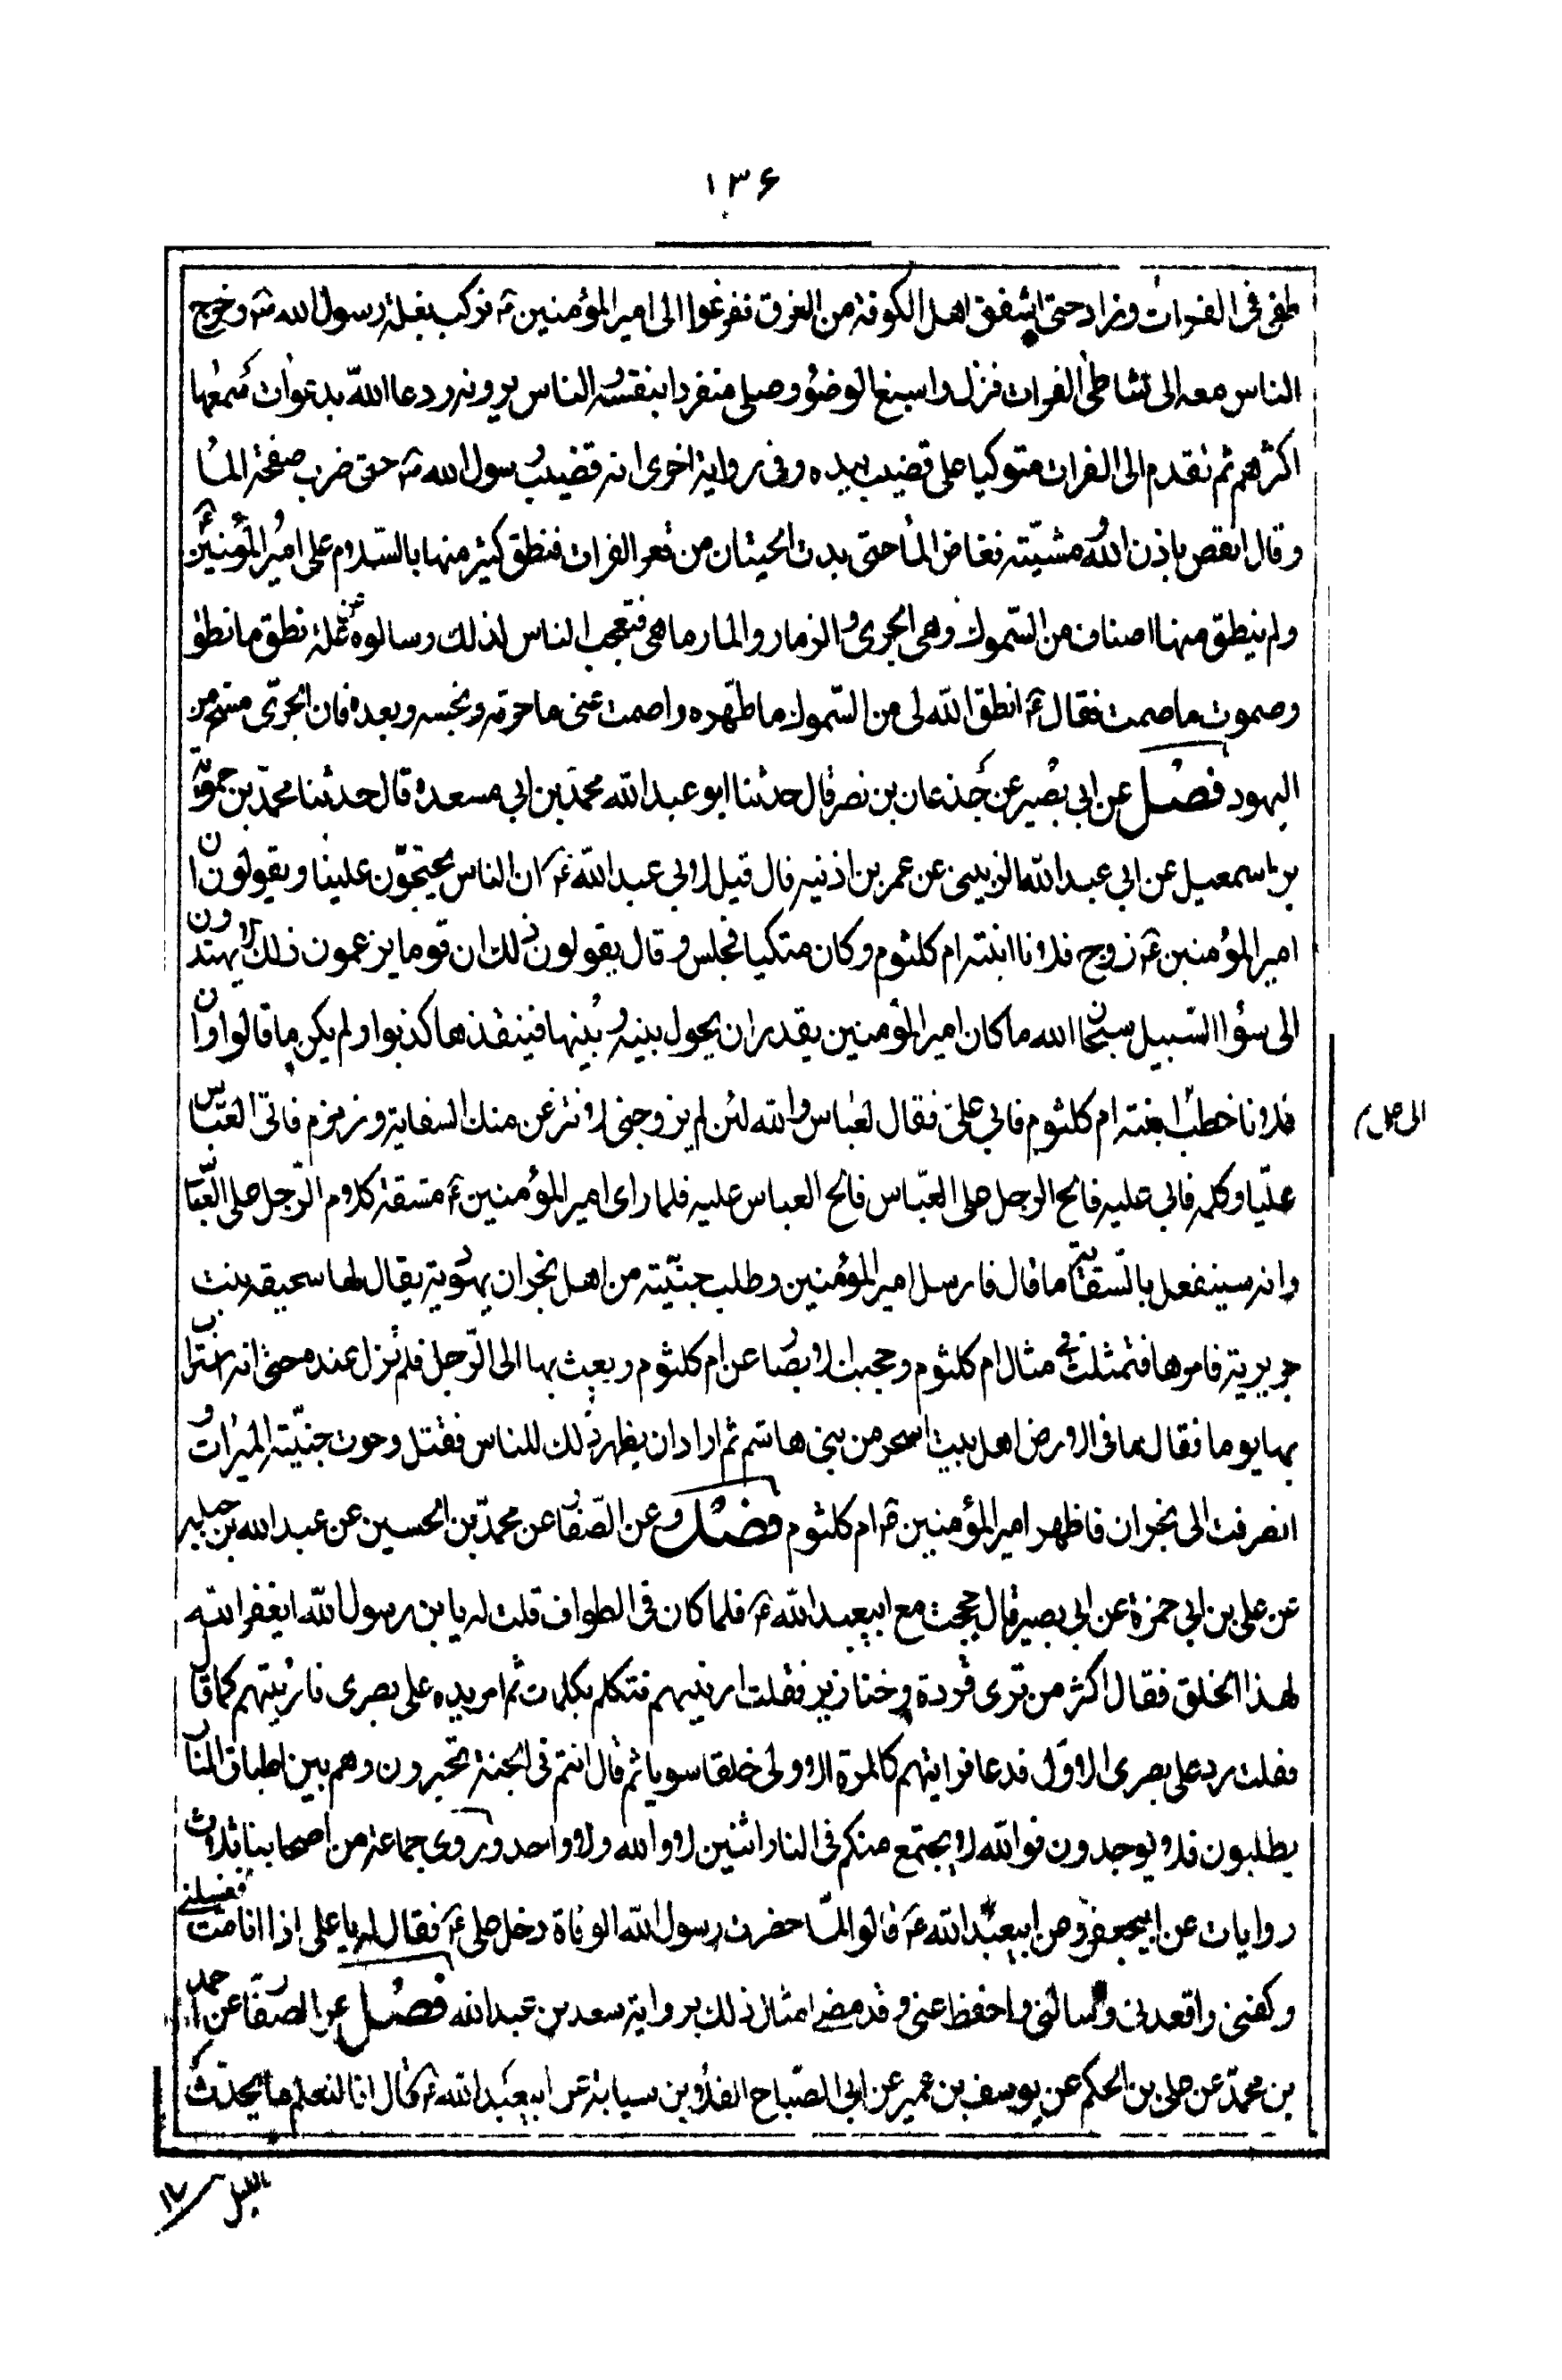 ۱۳۶
طغى فى الفرات وزاد حتى اشفق اهل الكوفة من الغرق ففزعوا الى امير المؤمنين ع فركب بغلة رسول الله ص وخرج
الناس معه الى شاطئ الفرات فنزل واسبغ الوضوء وصلى منفردا بنفسه والناس يرونه ودعا الله بدعوات سمعها
اكثرهم ثم تقدم الى الفرات متوكيا على قضيب بيده وفى رواية اخرى انه قضيب رسول الله ص حتى ضرب صفحة الماء
وقال انقص باذن الله ومشيّته فغاض الماء حتى بدت الحيتان من قعر الفرات فنطق كثير منها بالسّلام على امير المؤمنين ع
ولم ينطق منها اصناف من السّموك وهى الجرى والزمار والمارماهى فتعجب الناس لذلك وسالوه عن علة نطق ما نطق
وصموت ما صمت فقال ع انطق الله لى من السّموك ما طهّره واصمت عنى ما حرّمه ونجسه وبعده فان الجرّى مسخ من
اليهود فصل عن ابى بصير عن جذعان بن نصر قال حدثنا ابو عبد الله محمّد بن ابى مسعدة قال حدثنا محمّد بن حمويه
بن اسمعيل عن ابى عبد الله الزبيبى عن عمر بن اذنيه قال قيل لابى عبد الله ع ان الناس يحتجّون علينا ويقولون ان
امير المؤمنين ع زوج فلانا ابنته ام كلثوم وكان متكيا فجلس وقال يقولون ذلك ان قوما يزعمون ذلك لا يهتدون
الى سؤا السّبيل سبحان الله ما كان امير المؤمنين يقدر ان يحول بينه وبينها فينقذها كذبوا ولم يكن ما قالوا وان
فلانا خطب ابنته ام كلثوم فابى على فقال لعباس والله لئن لم يزوجنى لانتزعن منك السقاية وزمزم فاتى العبّاس
الى على م
عليّا وكلمه فابى عليه فالح الرجل على العبّاس فالح العباس عليه فلما راى امير المؤمنين ع مشقة كلام الرّجل على العبّا
وانه سيفعل بالسّقاية ما قال فارسل امير المؤمنين وطلب جنّيّته من اهل نجران يهوديّة يقال لها سحيقه بنت
جويرية فامرها فتمثلت فى مثال ام كلثوم وحجبت الابصار عن ام كلثوم وبعث بها الى الرّجل فلم تزل عنده حتى انه استراب
بها يوما فقال ما فى الارض اهل بيت اسحر من بنى هاشم ثم اراد ان يظهر ذلك للناس فقتل وحوت جنيّته الميراث و
انصرفت الى نجران فاظهر امير المؤمنين ع ام كلثوم فصل وعن الصّفار عن محمّد بن الحسين عن عبد الله بن جبله
عن على بن ابى حمزة عن ابى بصير قال حججت مع ابيعبد الله ع فلما كان فى الطواف قلت له يا بن رسول الله ايغفر الله
لهذا الخلق فقال اكثر من ترى قردة وخنازير فقلت ارنيهم فتكلم بكلمات ثم امر يده على بصرى فاريتهم كما قال
فقلت رد على بصرى الاوّل فدعا فرايتهم كالمرة الاولى خلقا سويا ثم قال انتم فى الجنة تحبرون وهم بين اطباق النار
يطلبون فلا يوجدون فوالله لا يجتمع منكم فى النار اثنين لا والله ولا واحد وروى جماعة من اصحابنا ثلاث
روايات عن ابيجعفر وعن ابيعبد الله ع قالوا لمّا حضرت رسول الله الوفاة دخل على ع فقال له يا على اذا انا مت فغسلنى
وكفنى واقعدنى وسالنى واحفظ عنى وقد مضى امثال ذلك برواية سعد بن عبد الله فصل عن الصّفّار عن احمد
بن محمّد عن على بن الحكم عن يوسف بن عمير عن ابى الصّباح الفلا بن سيابة عن ابيعبد الله ع قال انا لنعلم ما يحدث
بالليل
۱۷